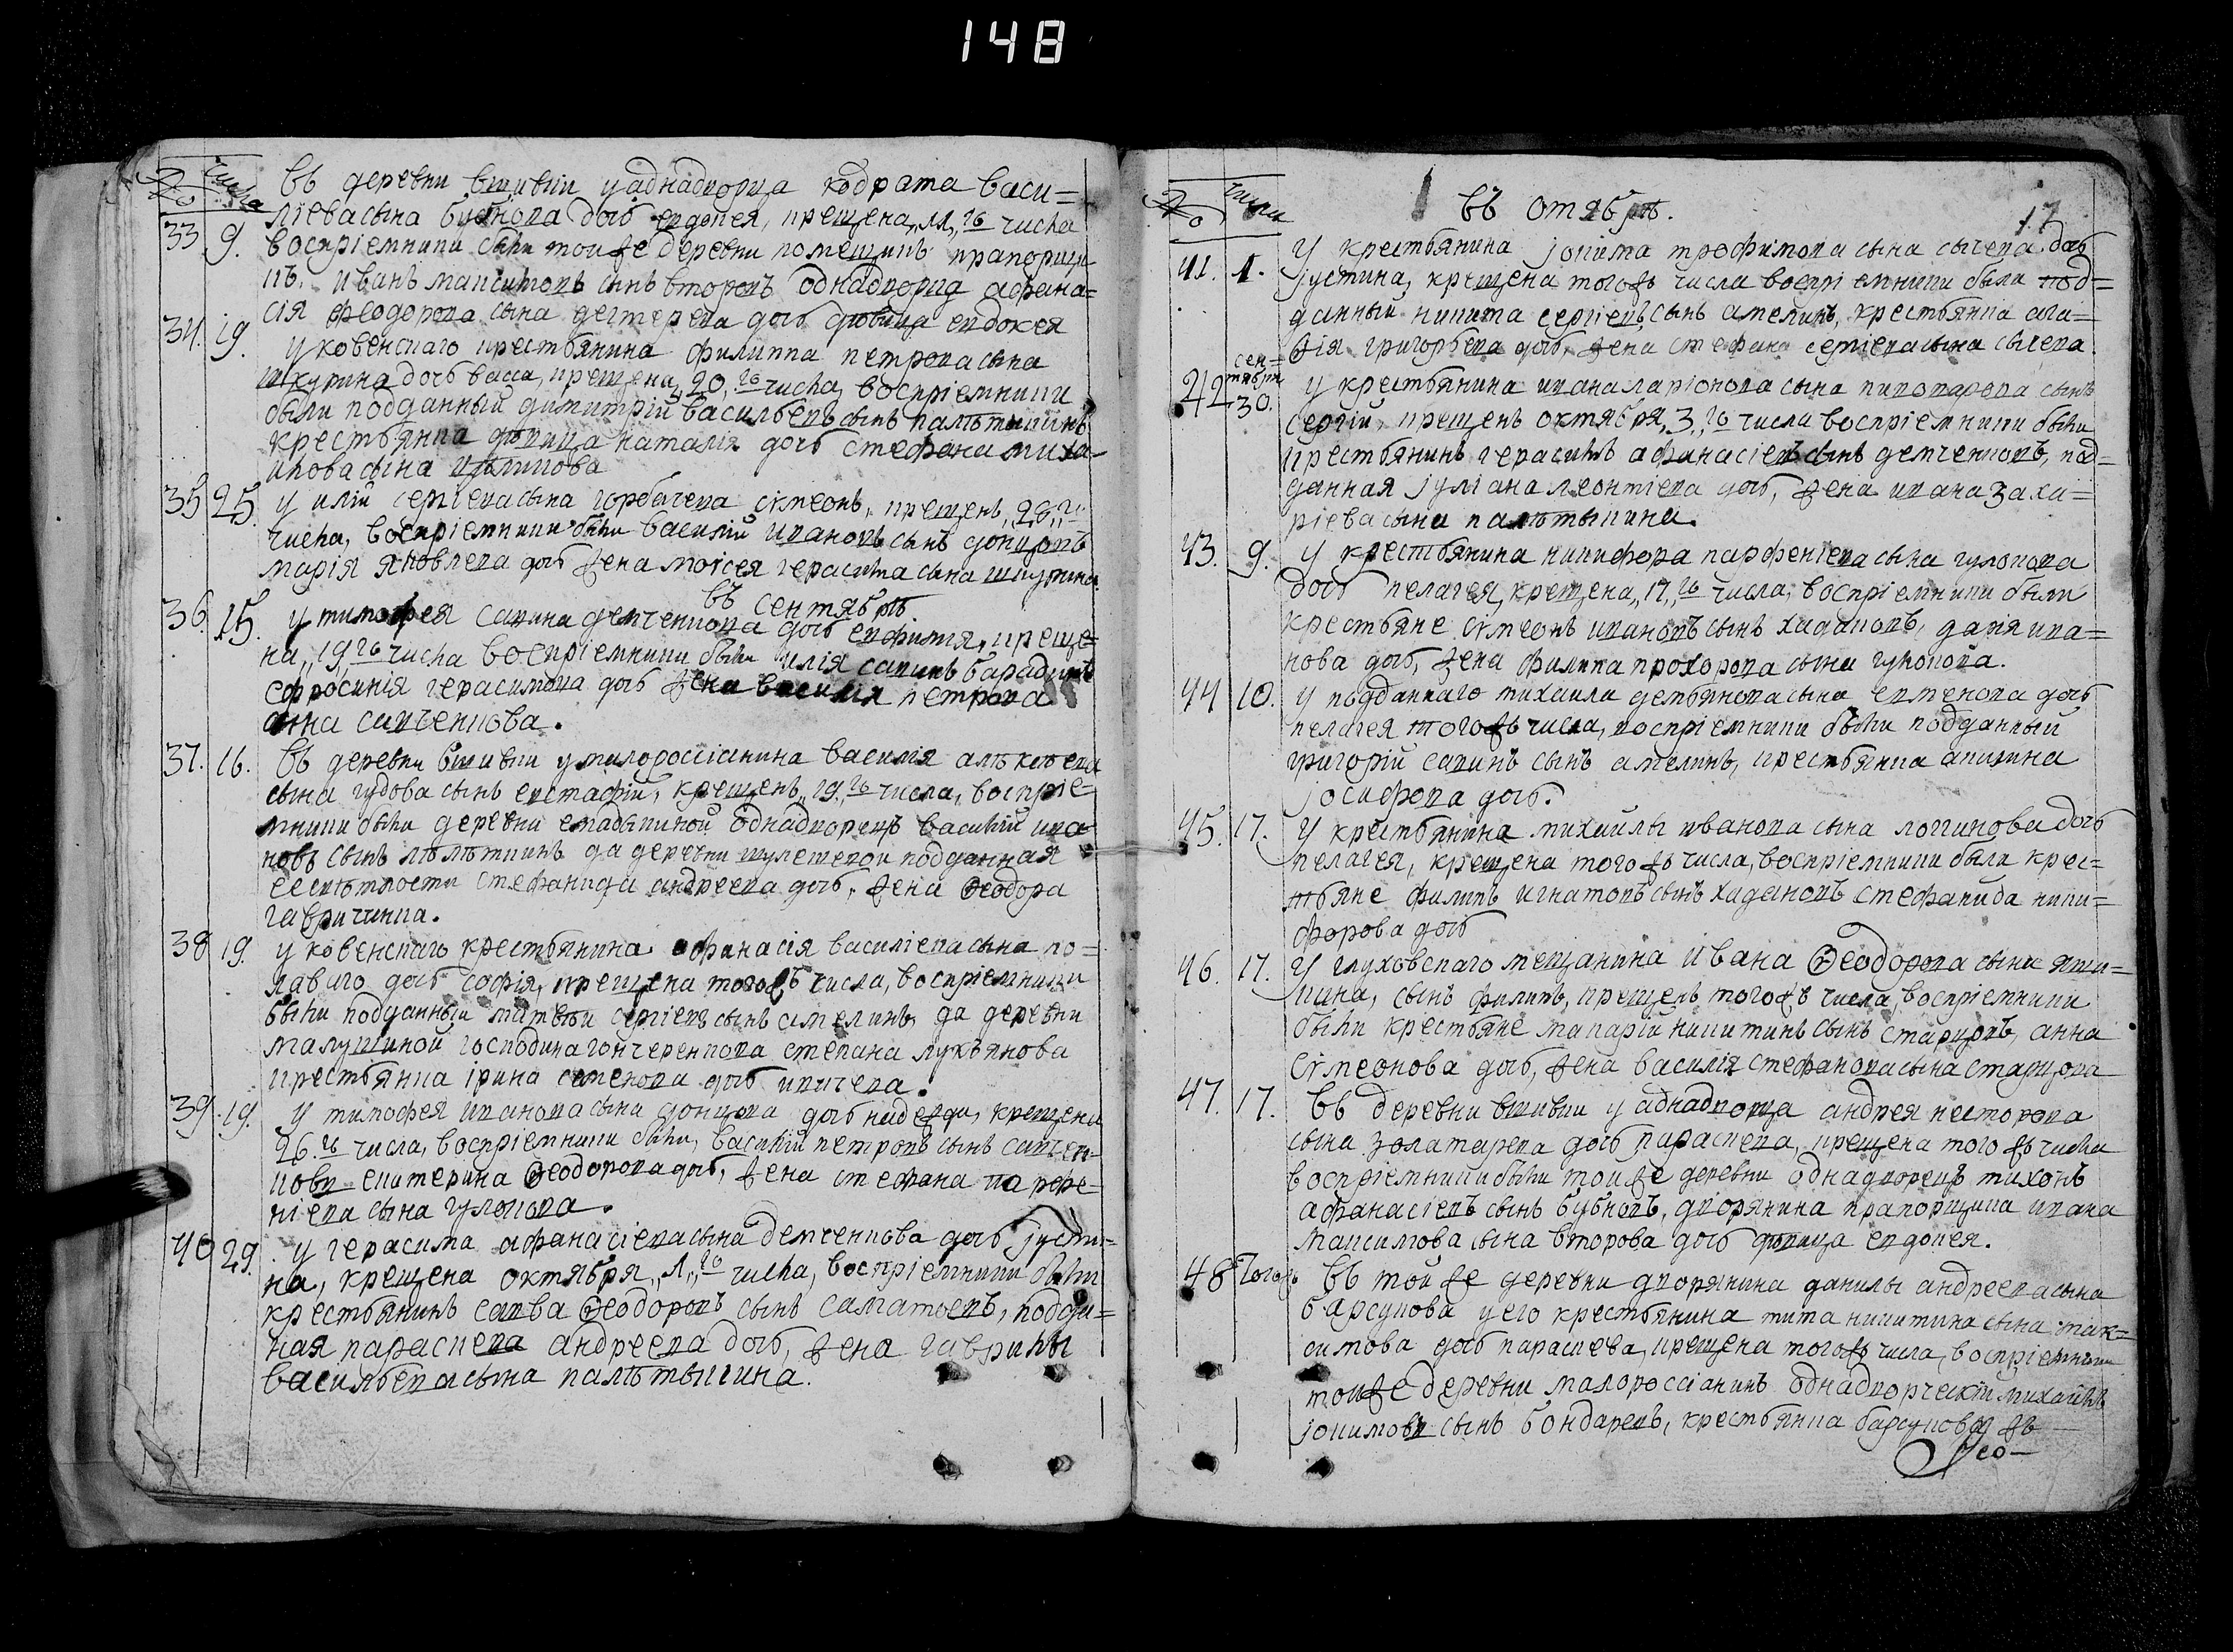 148
№ числа
въ деревни вшивки у аднадворца кодрата васи=
33 9. ліева сына бубнова дочь евдокея, крещена, 11, го числа
воспріемники были тоиже деревни помещикъ прапорщи
къ. иванъ максимовъ сынъ второвъ однадворца афана=
сія феодорова сына дегтерева дочь девица евдокея
34. 19. у ковенскаго крестьянина филиппа петрова сына
шкурина дочь васса, крещена, 20, го числа, воспріемники
были подданный димитрій васильевъ сынъ палѣтыкинъ
крестьянка дѣвица наталія дочь стефана миха
икова сына
35 25. у иліи сергіева сына горбачева сімеонъ, крещенъ, 26, г:
числа, воспріемники были василій ивановъ сынъ донцовъ
марія яковлева дочь жена моісея герасима сына шкурина
въ сентябрѣ.
36. 15. у тимофея савина демченкова дочь евфимія, креще=
на, 19, го числа воспріемники были илія савинъ барадинъ
ефросинія герасимова дочь жена василия петрова
сына савченкова.
37. 16. въ деревни вшивки у малороссіанина василія алѣксѣева
сына гудова сынъ евстафій, крещенъ, 19, го числа, воспріе=
мники были деревни стадыкиной однадворецъ василій ива
новъ сынъ да деревни шулешевои подданная
ее стефанида андреева дочь, жена феодора
гавричинка.
38 19. у ковенскаго крестьянина афанасія василіева сына по=
лаваго дочь софія, крещена тогожъ числа, воспріемники
были подданный матвеи сергіевъ сынъ амелинъ да деревни
малушиной господина гончеренкова степана лукьянова
крестьянка ірина семенова дочь кичева.
39. 19. у тимофея иванова сына донцова дочь надежда, крещена
26. го числа, воспріемники были, василий петровъ сынъ савчен=
ковъ екатерина феодорова дочь, жена стефана парфе=
ніева сына гулокова.
40 29. у герасима афанасіева сына демченкова дочь јусти=
на, крещена октября, 1, го числа, воспріемники были
крестьянинъ савва феодоровъ сынъ салматовъ, подда=
ная параскева андреева дочь, жена гаврилы
васильева сына палѣтыкина.
№ числа
въ отябрѣ. 17
41. 1. У крестьянина јокима трофимова сына сычева дочь
јустина, крещена тогожъ числа воспріемники была под=
данный никита сергіевъ сынъ амелинъ, крестьянка ага=
фія григорьева дочь, жена стефана сергіева сына сычева.
сен=
тября
42 30. у крестьянина ивана ларіонова сына пивоварова сынъ
сергій, крещенъ октября, 3, го числа воспріемники были
крестьянинъ герасимъ афанасіевъ сынъ демченковъ, под=
данная јуліана леонтіева дочь, жена ивана заха=
ріева сына палѣтыкина.
43. 9. У крестьянина никифора парфеніева сына гулокова
дочь пелагея, крещена, 17, го числа, воспріемники были
крестьяне сімеонъ ивановъ сынъ хадаковъ, даря ива=
нова дочь, жена филипа прохорова сына гулокова.
44 10. У подданнаго михаила демьянова сына еременова дочь
пелагея тогожъ числа, воспріемники были подданный
григорій савинъ сынъ амелинъ, крестьянка акилина
јосифова дочь.
45. 17. У крестьянина михаилы иванова сына логгинова дочь
пелагея, крещена тогожъ числа, воспріемники были крес=
тьяне филипъ игнатовъ сынъ хадаковъ стефанида ники=
форова дочь
46. 17. У глуховскаго мещанина ивана феодорова сына яки=
кина, сынъ филипъ, крещенъ тогожъ числа, воспріемники
были крестьяне макарій никитинъ сынъ старцовъ, анна
сімеонова дочь, жена василія стефанова сына старцова
47. 17. въ деревни вшивки у аднадворца андрея несторова
сына золатарева дочь параскева, крещена тогожъ числа
воспріемники были тоиже деревни однадворецъ тихонъ
афанасіевъ сынъ бубновъ, дворянина прапорщика ивана
максимова сына второва дочь девица евдокея.
48 тогожъ въ той же деревни дворянина данилы андреева сына
барсукова у его крестьянина тита никитина сына мак=
симова дочь параскева, крещена тогожъ числа, воспріемники
тоиже деревни малороссіанинъ однадворческій михаилъ
јокимовъ сынъ бондаревъ, крестьянка барсуковажъ
Фео=